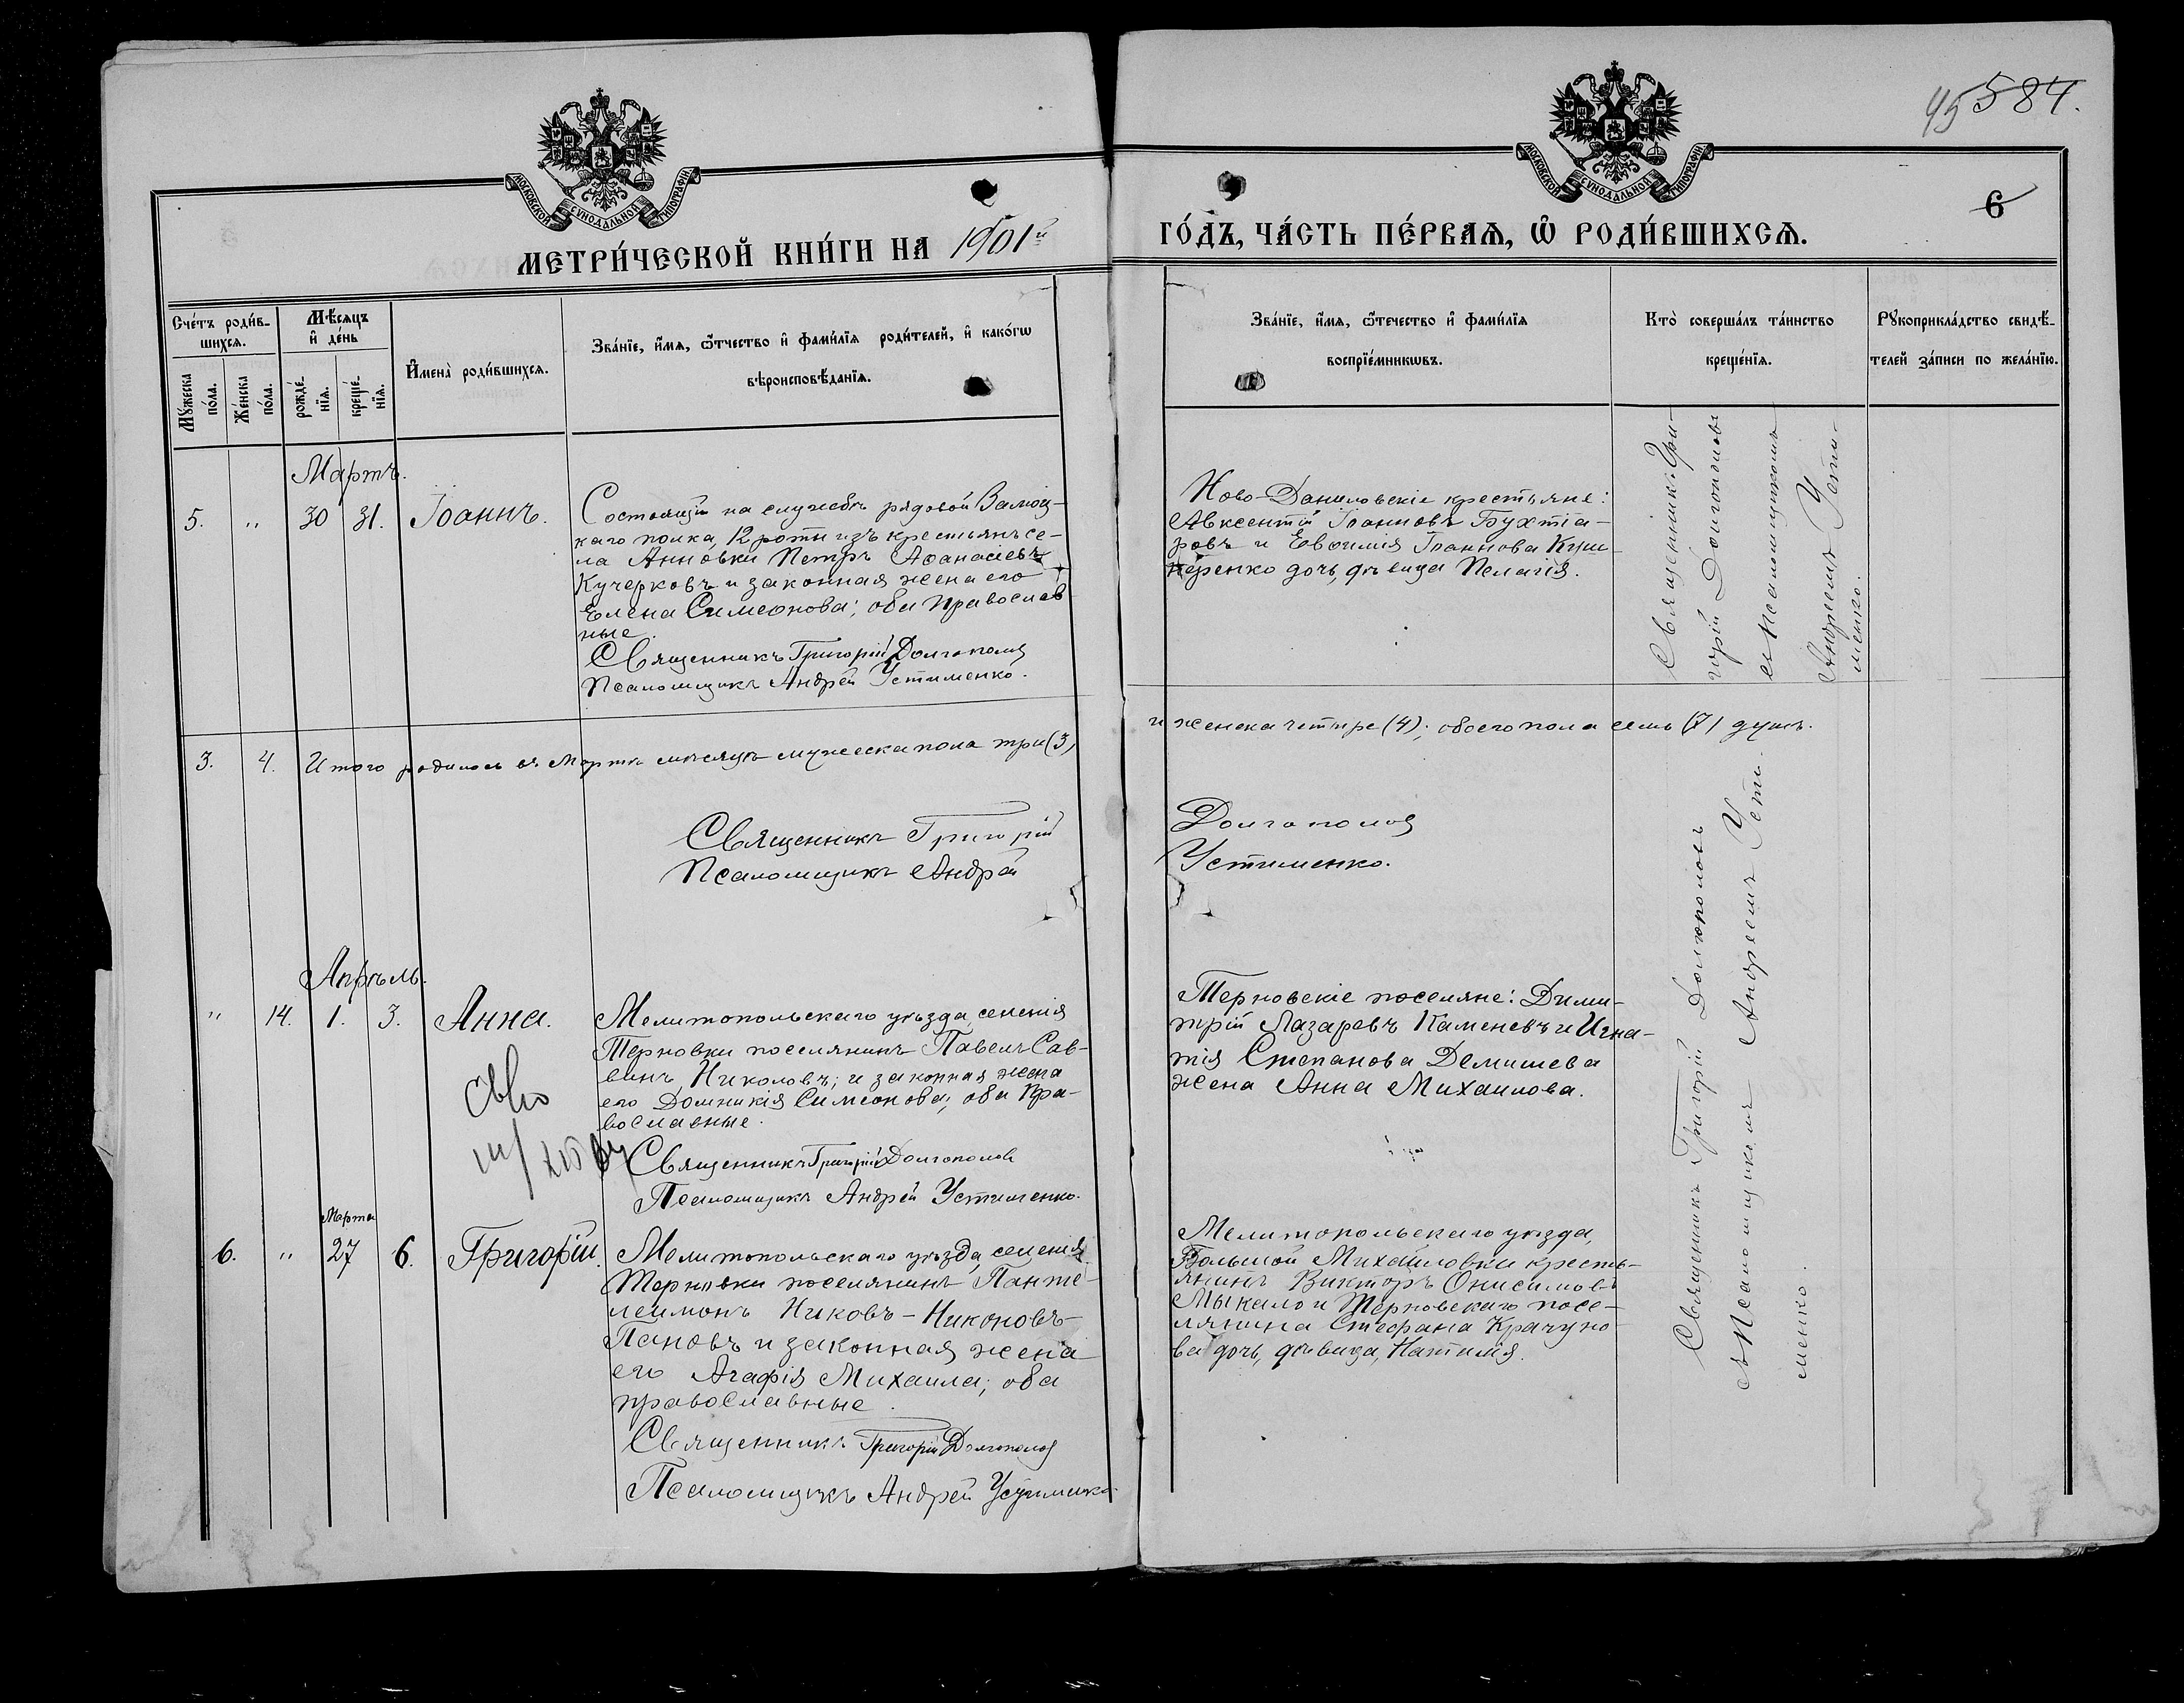 45 584.
МОСКОВСКОЙ СУНОДАЛЬНОЙ ТИПОГРАФІИ
МОСКОВСКОЙ СУНОДАЛЬНОЙ ТИПОГРАФІИ
6
МЕТРИ́ЧЕСКОЙ КНИ́ГИ НА 1901й
ГО́ДЪ, ЧА́СТЬ ПЕ́РВАѦ, Ѡ҆ РОДИ́ВШИХСѦ.
Сче́тъ роди́в-
шихсѧ.
Мꙋ́жеска по́ла.
Же́нска по́ла.
Мѣ́сѧцъ
и҆ де́нь
рожде́-
нїѧ.
креще́-
нїѧ.
И҆мена̀ роди́вшихсѧ.
Зва́нїе, и҆́мѧ, ѻ҆́тчество и҆ фами́лїѧ роди́телей, и҆ како́гѡ
вѣроисповѣ́данїѧ.
Зва́нїе, и҆́мѧ, ѻ҆те́чество и҆ фами́лїѧ
воспрїе́мникѡвъ.
Кто̀ соверша́лъ та́инство
креще́нїѧ.
Рꙋкоприкла́дство свидѣ́-
телей за́писи по жела́нїю.
Мартъ.
5. " 30 31. Іоаннъ.
Состоящій на службѣ рядовой Замоц-
каго полка, 12 роты изъ крестьянъ се-
ла Анновки Петръ Аѳанасіевъ
Кучерковъ и законная жена его
Елена Симеонова; оба православ
ные.
Священникъ Григорій Долгополов
Псаломщикъ Андрей Устименко.
Ново-Даниловскіе крестьяне:
Авксентій Іоанновъ Бухтіа-
ровъ и Евѳимія Іоаннова Куш
неренко дочь, дѣвица Пелагія.
Священникъ Гри-
горій Долгополовъ
съ Псаломщикомъ
Андреемъ Усти-
менко.
3. 4. Итого родилось въ Мартѣ мѣсяцѣ мужеска пола три (3)
и женска четыре (4); обоего пола семь (7) душъ.
Священникъ Григорій Долгополов
Псаломщикъ Андрей Устименко.
Апрѣль.
" 14. 1. 3. Анна.
Мелитопольскаго уѣзда, селенія
Терновки поселянинъ Павелъ Сав-
винъ Николовъ; и законная жена
его Домникія Симеонова; оба Пра-
вославные.
Священникъ Григорій Долгополов
Псаломщикъ Андрей Устименко.
Терновскіе поселяне: Дими-
трій Лазаревъ Каменевъ и Игна-
тія Степанова Демишева
жена Анна Михаилова.
Священникъ Григорій Долгополовъ
съ Псаломщикомъ Андреемъ Усти
менко.
Марта
6. " 27 6. Григорій.
Мелитопольскаго уѣзда, селенія
Терновки поселянинъ Панте-
леимонъ Никовъ-Никоновъ-
Пановъ и законная жена
его Агафія Михаила; оба
православные.
Священникъ Григорій Долгополов
Псаломщикъ Андрей Устименко
Мелитопольскаго уѣзда,
Большой Михайловки кресть-
янинъ Викторъ Онисимовъ
Мыкало и Терновскаго посе-
лянина Стефана Крачуно-
ва дочь, дѣвица, Наталія.